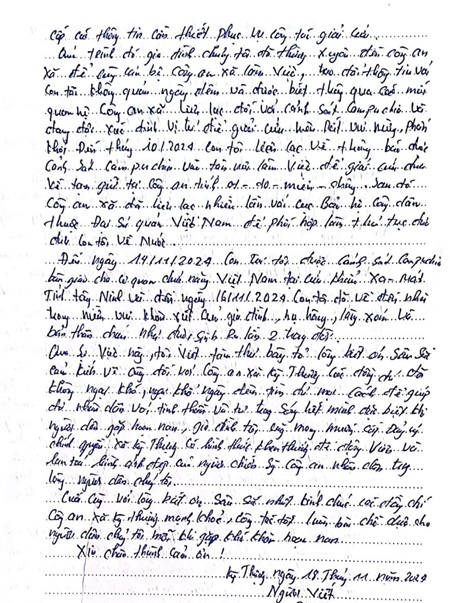 cấp có thông tin cần thiết phục vụ công tác giải cứu.
Quá trình đó gia đình chúng tôi đã thường xuyên đến công an
xã để cùng cán bộ công an xã làm việc, trao đổi thông tin với
con tôi không quản ngày đêm và được biết thông qua các mối
quan hệ Công an xã liên lạc được với cảnh sát Campuchia và
đang được xác định vị trí để giải cứu
Đến tháng 10/2024 con tôi liên lạc về thông báo được
Cảnh sát Campuchia vào tận nơi làm việc để giải cứu đưa
về tạm giữ tại Công an tỉnh ot-do-miên-chây. Sau đó
Công an xã đã liên lạc nhiều lần với cục Bảo hộ công dân
thuộc Đại sứ quán Việt Nam để phối hợp làm thủ tục cho
đưa con tôi về nước.
Đến ngày 14/11/2024 con trai tôi được cảnh sát Campuchia
bàn giao cho cơ quan chức năng Việt Nam tại cửa khẩu Xa-mát
Tỉnh tây Ninh và đến ngày 16/11/2024 con tôi đã về đến nhà
trong niềm vui khôn xiết của gia đình, họ hàng, làng xóm và
bản thân cháu như được sinh ra lần 2 trong đời.
Qua sự việc này, tôi viết tâm thư bày tỏ lòng biết ơn sâu sắc
đối với Công an xã Kỳ Thượng các đồng chí đã
không ngại khó, ngại khổ ngày đêm tìm mọi cách để giúp
đỡ nhân dân với tinh thần và tư tưởng hết mình đặc biệt khi
người dân gặp hoạn nạn, gia đình tôi mong muốn cấp ủy
chính quyền xã Kỳ Thượng có hình thức khen thưởng để động viên và
lan tỏa hình ảnh đẹp của người chiến sỹ công an nhân dân trong
lòng người dân chúng tôi.
Cuối cùng với lòng biết ơn sâu sắc nhất kính chúc các đồng chí
Công an xã Kỳ thượng mạnh khỏe, công tác tốt luôn bên chở che cho
người dân chúng tôi mỗi khi gặp khó khăn hoạn nạn.
Xin chân thành cảm ơn!
Kỳ Thượng ngày 18 Tháng 11 năm 2024
Người viết